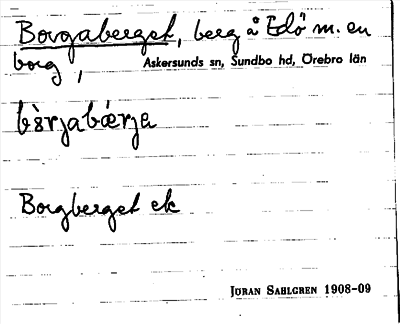 Borgaberget, berg å Edö m. en
borg,
Askersunds sn, Sundbo hd, Örebro län
bårjabärje
Borgberget ek
JÖRAN SAHLGREN 1908-09